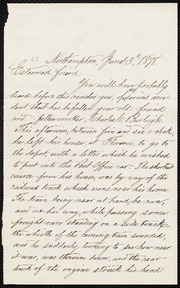 Northampton, June 3d 1878
Esteemed friend,
You will have probably
heard before this reaches you, of serious acci-
dent that has befallen your old friend
and fellow worker, Charles C. Burleigh
this afternoon, between five and six o'clock,
he left his house at Florence to go to
the depot, with a letter which he wished
to put into the Post Office car. His shortest
course from his house, was by way of the
railroad track which runs near his home
The train being near at hand, he ran,
and on his way, while passing some
freight cars standing on a side track
the whistle of the coming train sounded,
and he suddenly, turning to see how near
it was, was thrown down, and the rear
truck of the engine struck his head